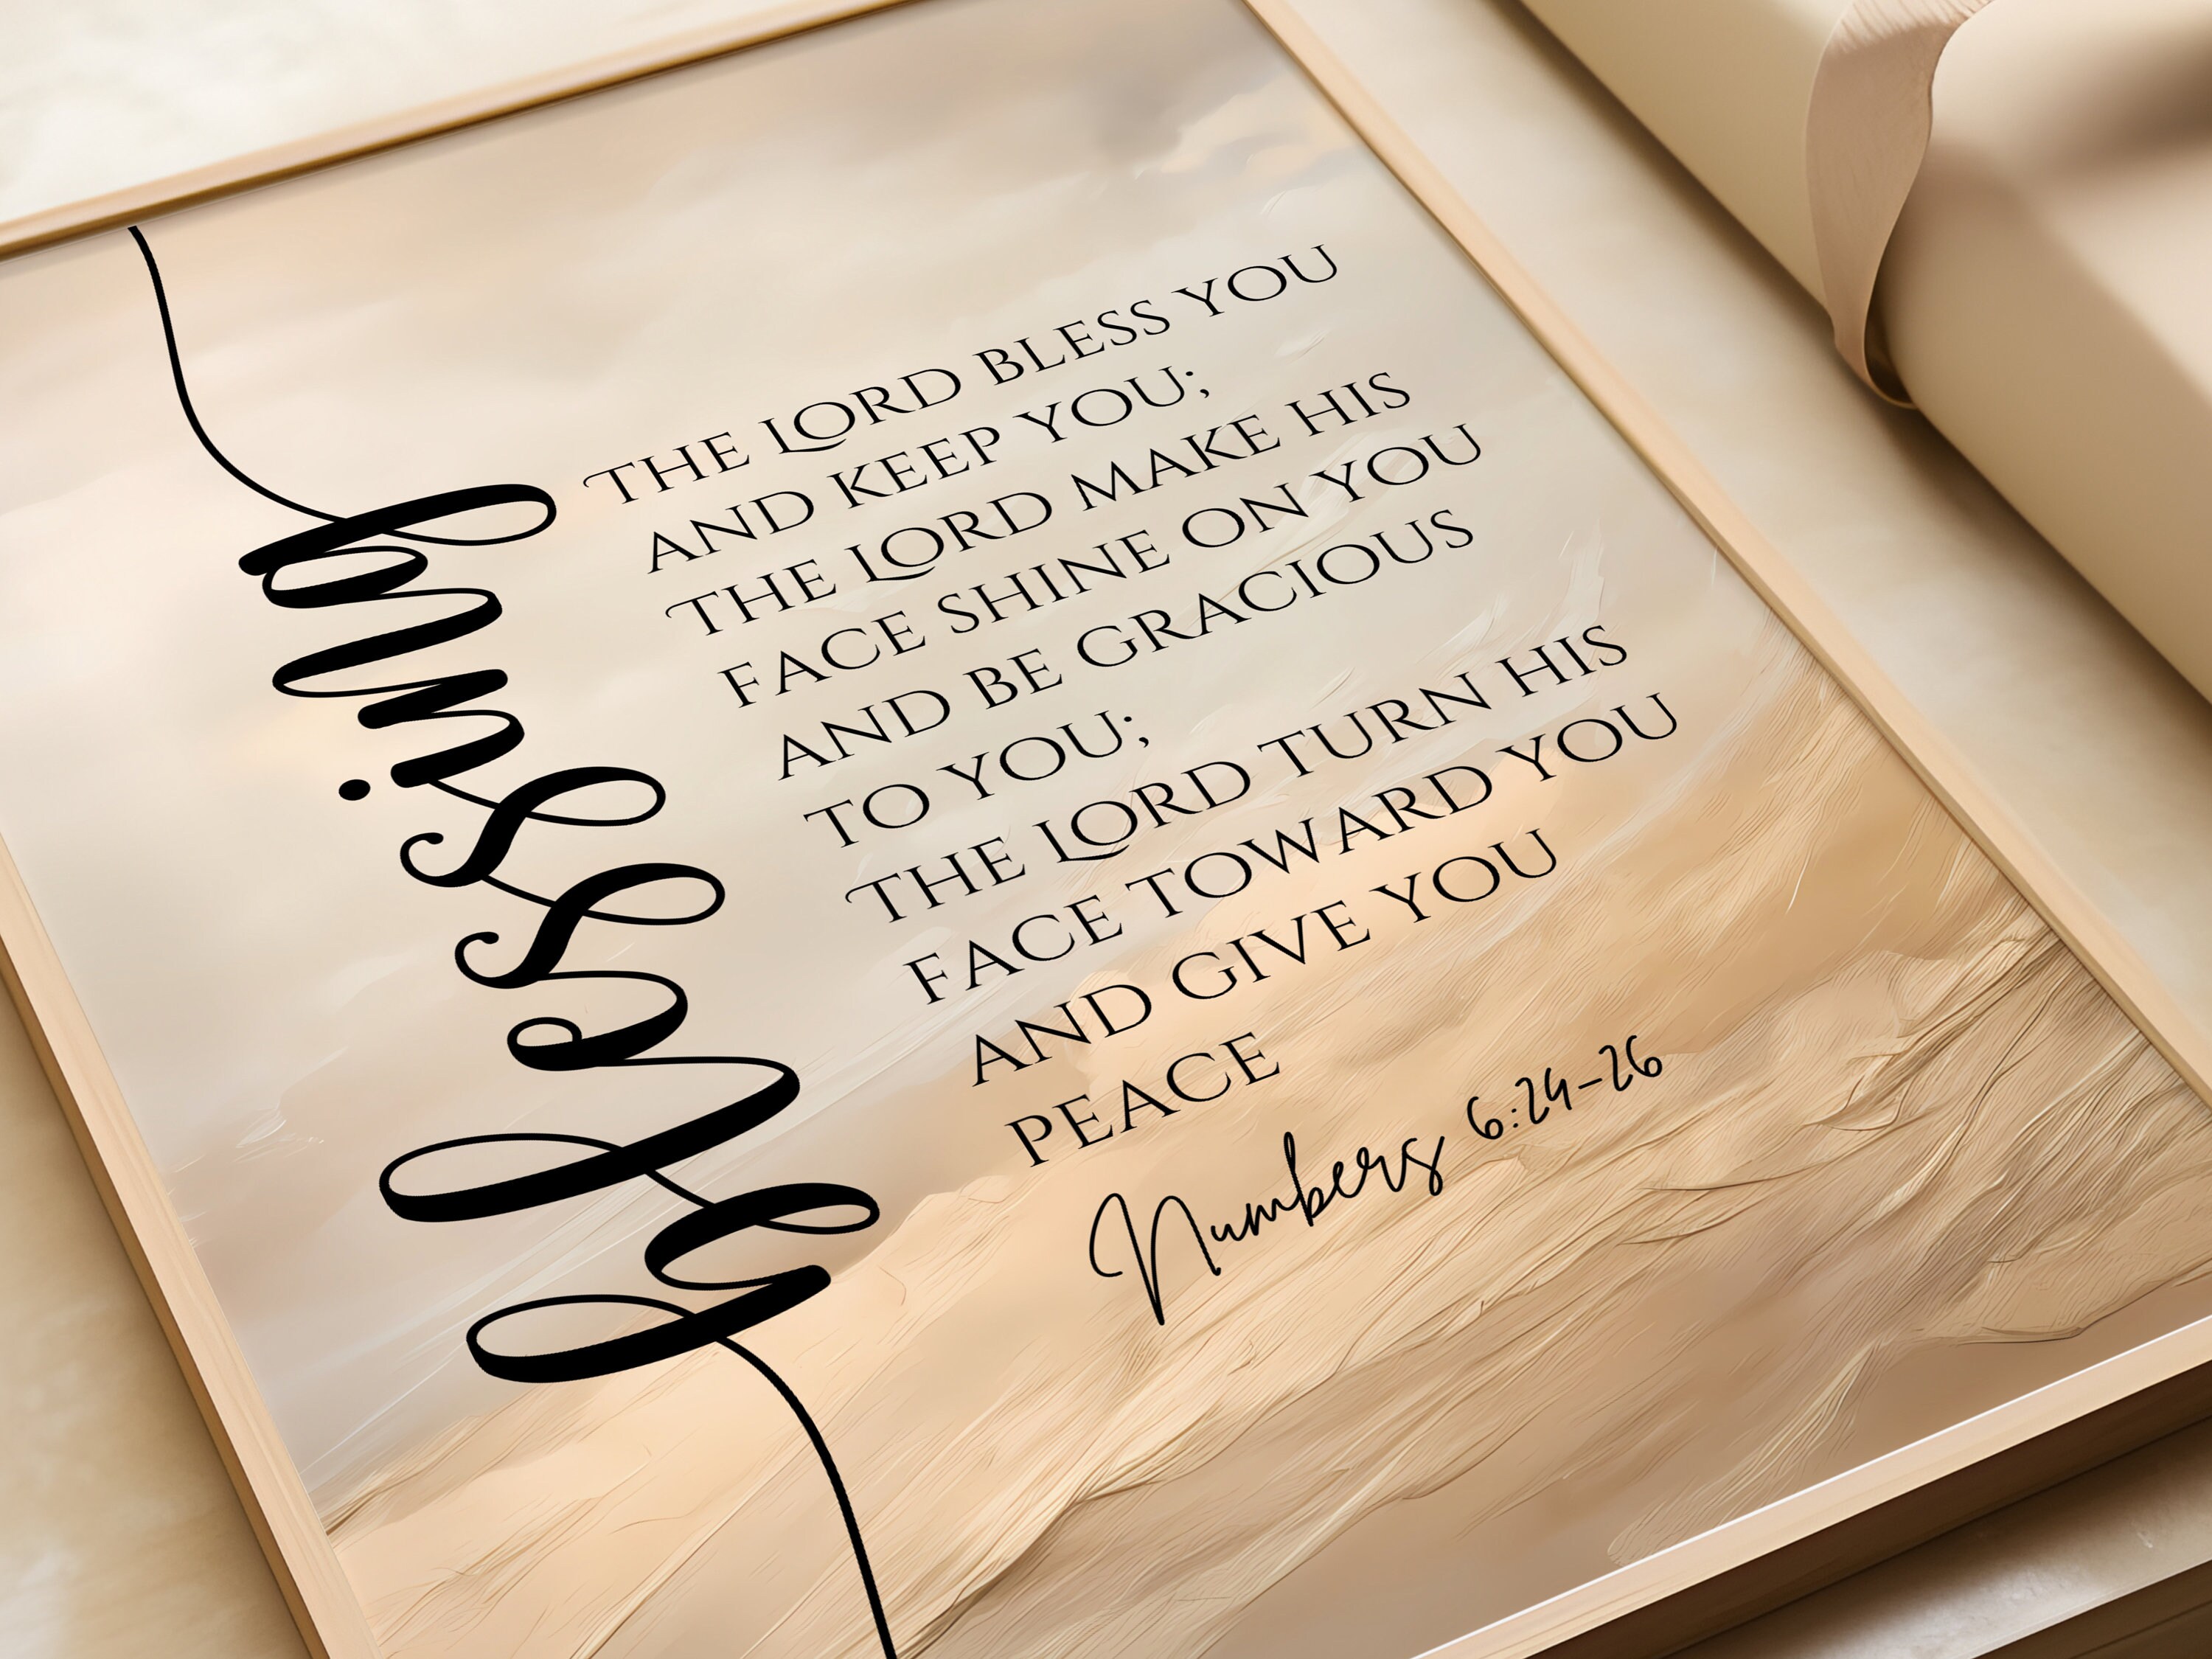 blessing
THE LORD BLESS YOU
AND KEEP YOU;
THE LORD MAKE HIS
FACE SHINE ON YOU
AND BE GRACIOUS
TO YOU;
THE LORD TURN HIS
FACE TOWARD YOU
AND GIVE YOU
PEACE
Numbers 6:24-26